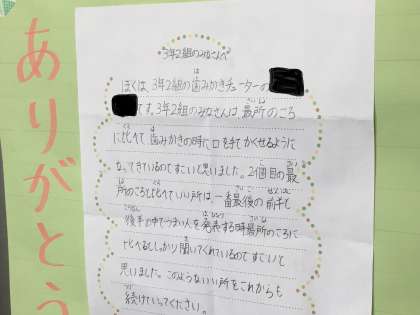 ありがとう
3年2組のみなさんへ
ぼくは、3年2組の歯みかきチューターの
です。3年2組のみなさんは、最所のころ
に比べて歯みかきの時に口を手でかくせるように
なってきているのですごいと思いました。2個目の最
所のころと比べていい所は、一番最後の前半と
後半の中でうまい人を発表する時最所のころに
比べるとしっかり聞いてくれているのですごいと
思いました。このようないい所をこれからも
続けていってください。